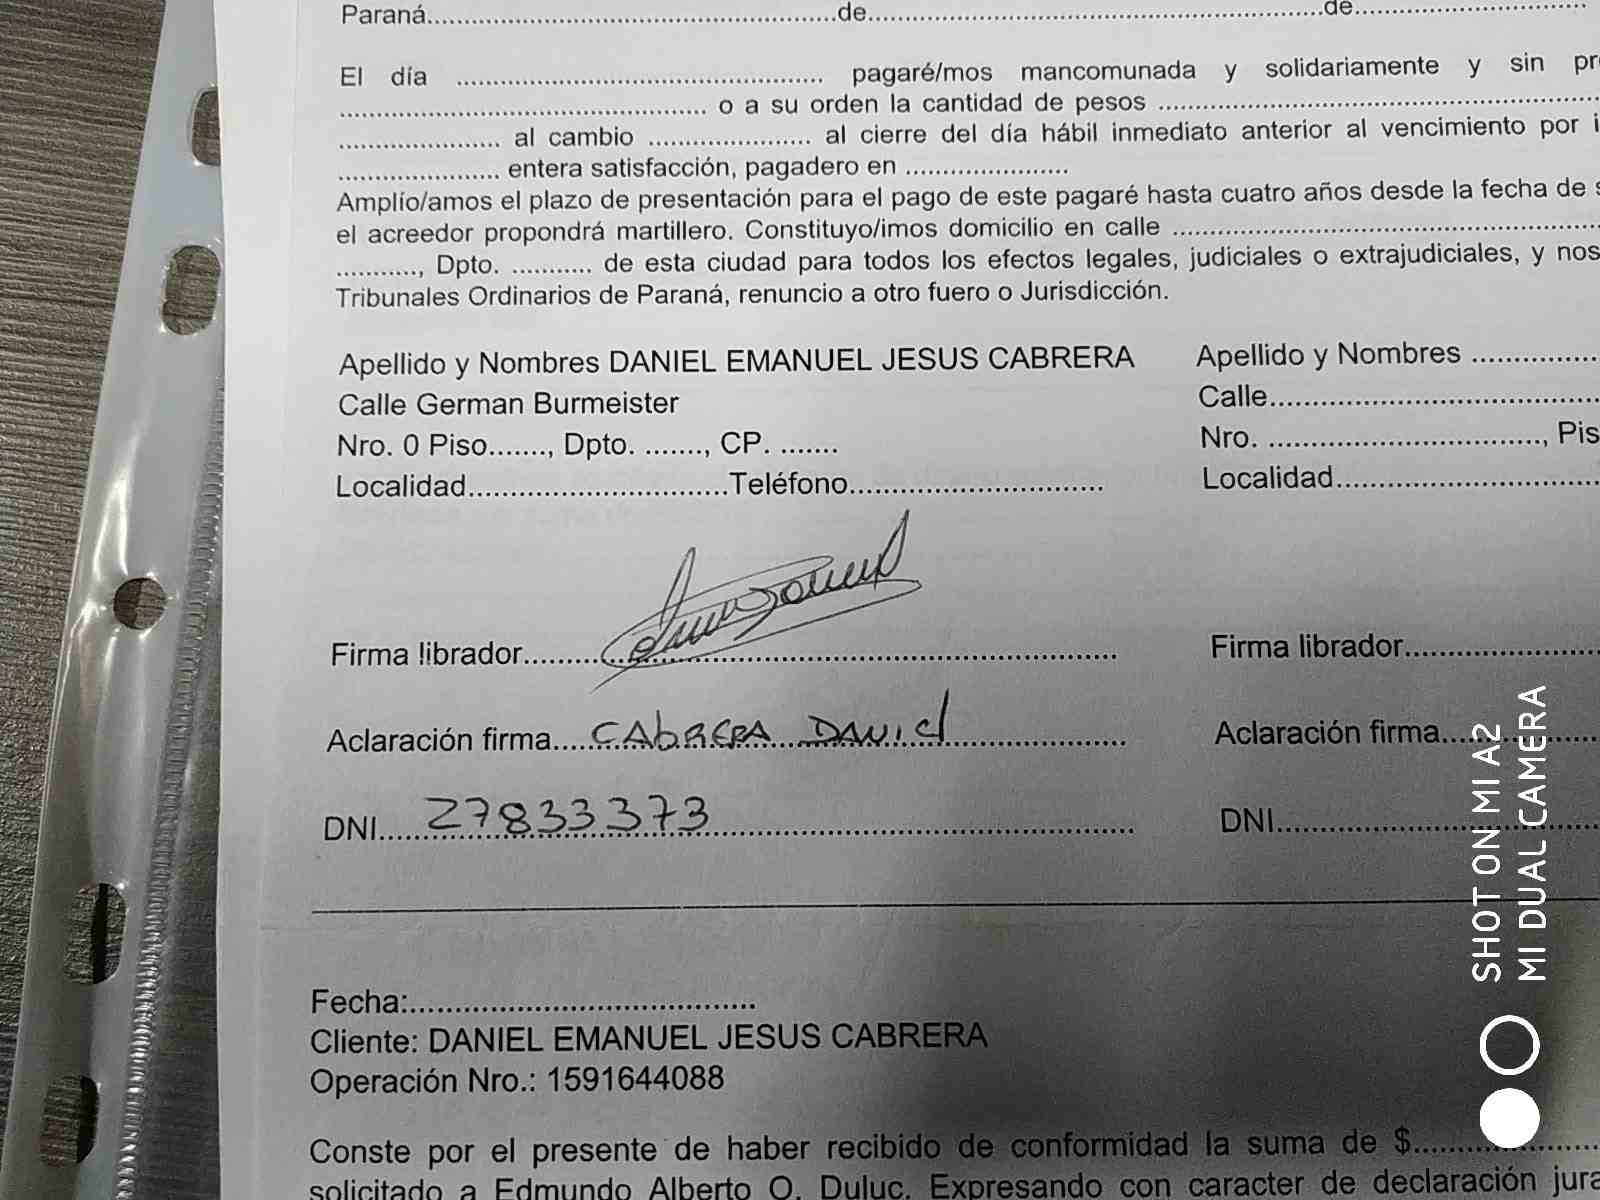 Paraná..................................................de........................................................de............................
El día ............................................. pagaré/mos mancomunada y solidariamente y sin
............................................. o a su orden la cantidad de pesos ......................................................
.................... al cambio .................... al cierre del día hábil inmediato anterior al vencimiento por
.................... entera satisfacción, pagadero en ....................
Amplío/amos el plazo de presentación para el pago de este pagaré hasta cuatro años desde la fecha de
el acreedor propondrá martillero. Constituyo/imos domicilio en calle ....................................................
..........., Dpto. .......... de esta ciudad para todos los efectos legales, judiciales o extrajudiciales, y nos
Tribunales Ordinarios de Paraná, renuncio a otro fuero o Jurisdicción.
Apellido y Nombres DANIEL EMANUEL JESUS CABRERA
Calle German Burmeister
Nro. 0 Piso......., Dpto. ......., CP. .......
Localidad................................Teléfono...............................
Firma librador......................................................................
Aclaración firma....CABRERA DANIEL......................
DNI.....27833373..................................................
Apellido y Nombres ................
Calle..........................................
Nro. ..................................,
Localidad.................................
Firma librador.........................
Aclaración firma....................
DNI.......................................
Fecha:..........................................
Cliente: DANIEL EMANUEL JESUS CABRERA
Operación Nro.: 1591644088
Conste por el presente de haber recibido de conformidad la suma de $.......................
solicitado a Edmundo Alberto O. Duluc. Expresando con caracter de declaración
SHOT ON MI A2
MI DUAL CAMERA